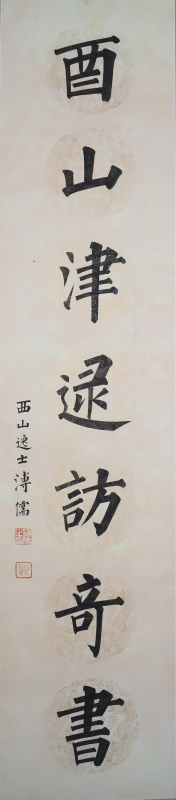 酉山津逮訪奇書
西山逸士溥儒